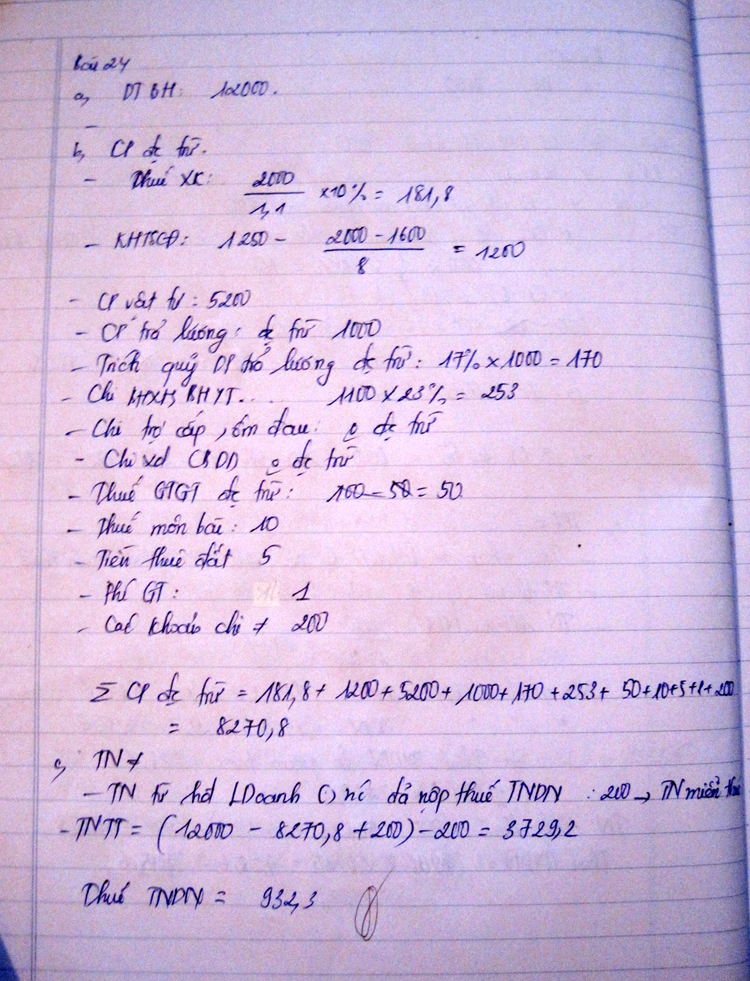 Bài 24
a, DTBH: 12000.
-
b, CP đc trừ.
- Thuế XK: 2000 / 1,1 x10% = 181,8
- KHTSCĐ: 1250 - (2000 - 1600) / 8 = 1200
- CP vật tư: 5200
- CP trả lương: đc trừ 1000
- Trích quỹ DP trả lương đc trừ: 17% x 1000 = 170
- Chi BHXH, BHYT.... 1100 x 23% = 253
- Chi trợ cấp, ốm đau: o đc trừ
- Chi xd CBDD o đc trừ
- Thuế GTGT đc trừ: 100 - 50 = 50
- Thuế môn bài: 10
- Tiền thuê đất 5
- Phí GT: 1
- Các khoản chi ≠ 200
Σ CP đc trừ = 181,8 + 1200 + 5200 + 1000 + 170 + 253 + 50 + 10 + 5 + 1 + 200
= 8270,8
c, TN ≠
- TN từ hđ LDoanh () nc đã nộp thuế TNDN : 200 → TN miễn thuế
- TNTT = (12000 - 8270,8 + 200) - 200 = 3729,2
Thuế TNDN = 932,3